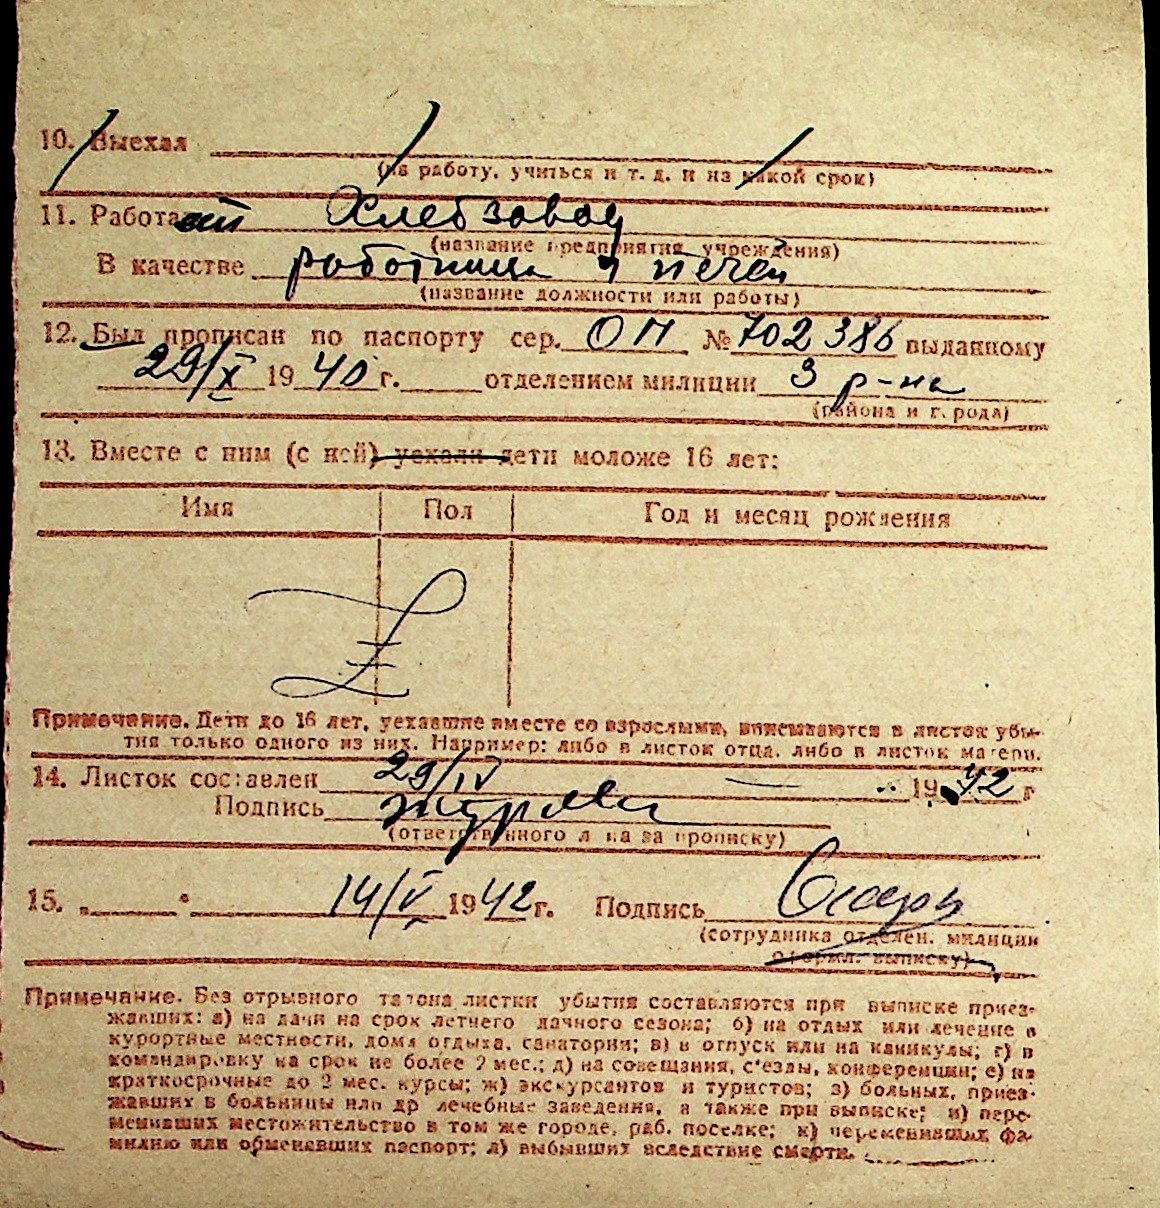 10. Выехал
(на работу, учиться и т. д. и на какой срок)
11. Работает Хлебзавод
(название предприятия, учреждения)
В качестве работница у печей
(название должности или работы)
12. Был прописан по паспорту сер. ОП № 702386 выданному
29/X 1940 г. отделением милиции 3 р-на
(района и города)
13. Вместе с ним (с ней) уехали дети моложе 16 лет:
Имя Пол Год и месяц рождения
Примечание. Дети до 16 лет, уехавшие вместе со взрослыми, вписываются в листок убы-
тия только одного из них. Например: либо в листок отца, либо в листок матери.
14. Листок составлен 29/IV 1942 г
Подпись
(ответственного лица за прописку)
15. 14/V 1942 г. Подпись
(сотрудника отделен. милиции
оформил. выписку)
Примечание. Без отрывного талона листки убытия составляются при выписке приез-
жавших: а) на дачи на срок летнего дачного сезона; б) на отдых или лечение в
курортные местности, дома отдыха, санатории; в) в отпуск или на каникулы; г) в
командировку на срок не более 2 мес.; д) на совещания, с'езды, конференции; е) на
краткосрочные до 2 мес. курсы; ж) экскурсантов и туристов; з) больных, приез-
жавших в больницы или др лечебные заведения, а также при выписке; и) пере-
менивших местожительство в том же городе, раб. поселке; к) переменивших фа-
милию или обменявших паспорт; л) выбывших вследствие смерти.